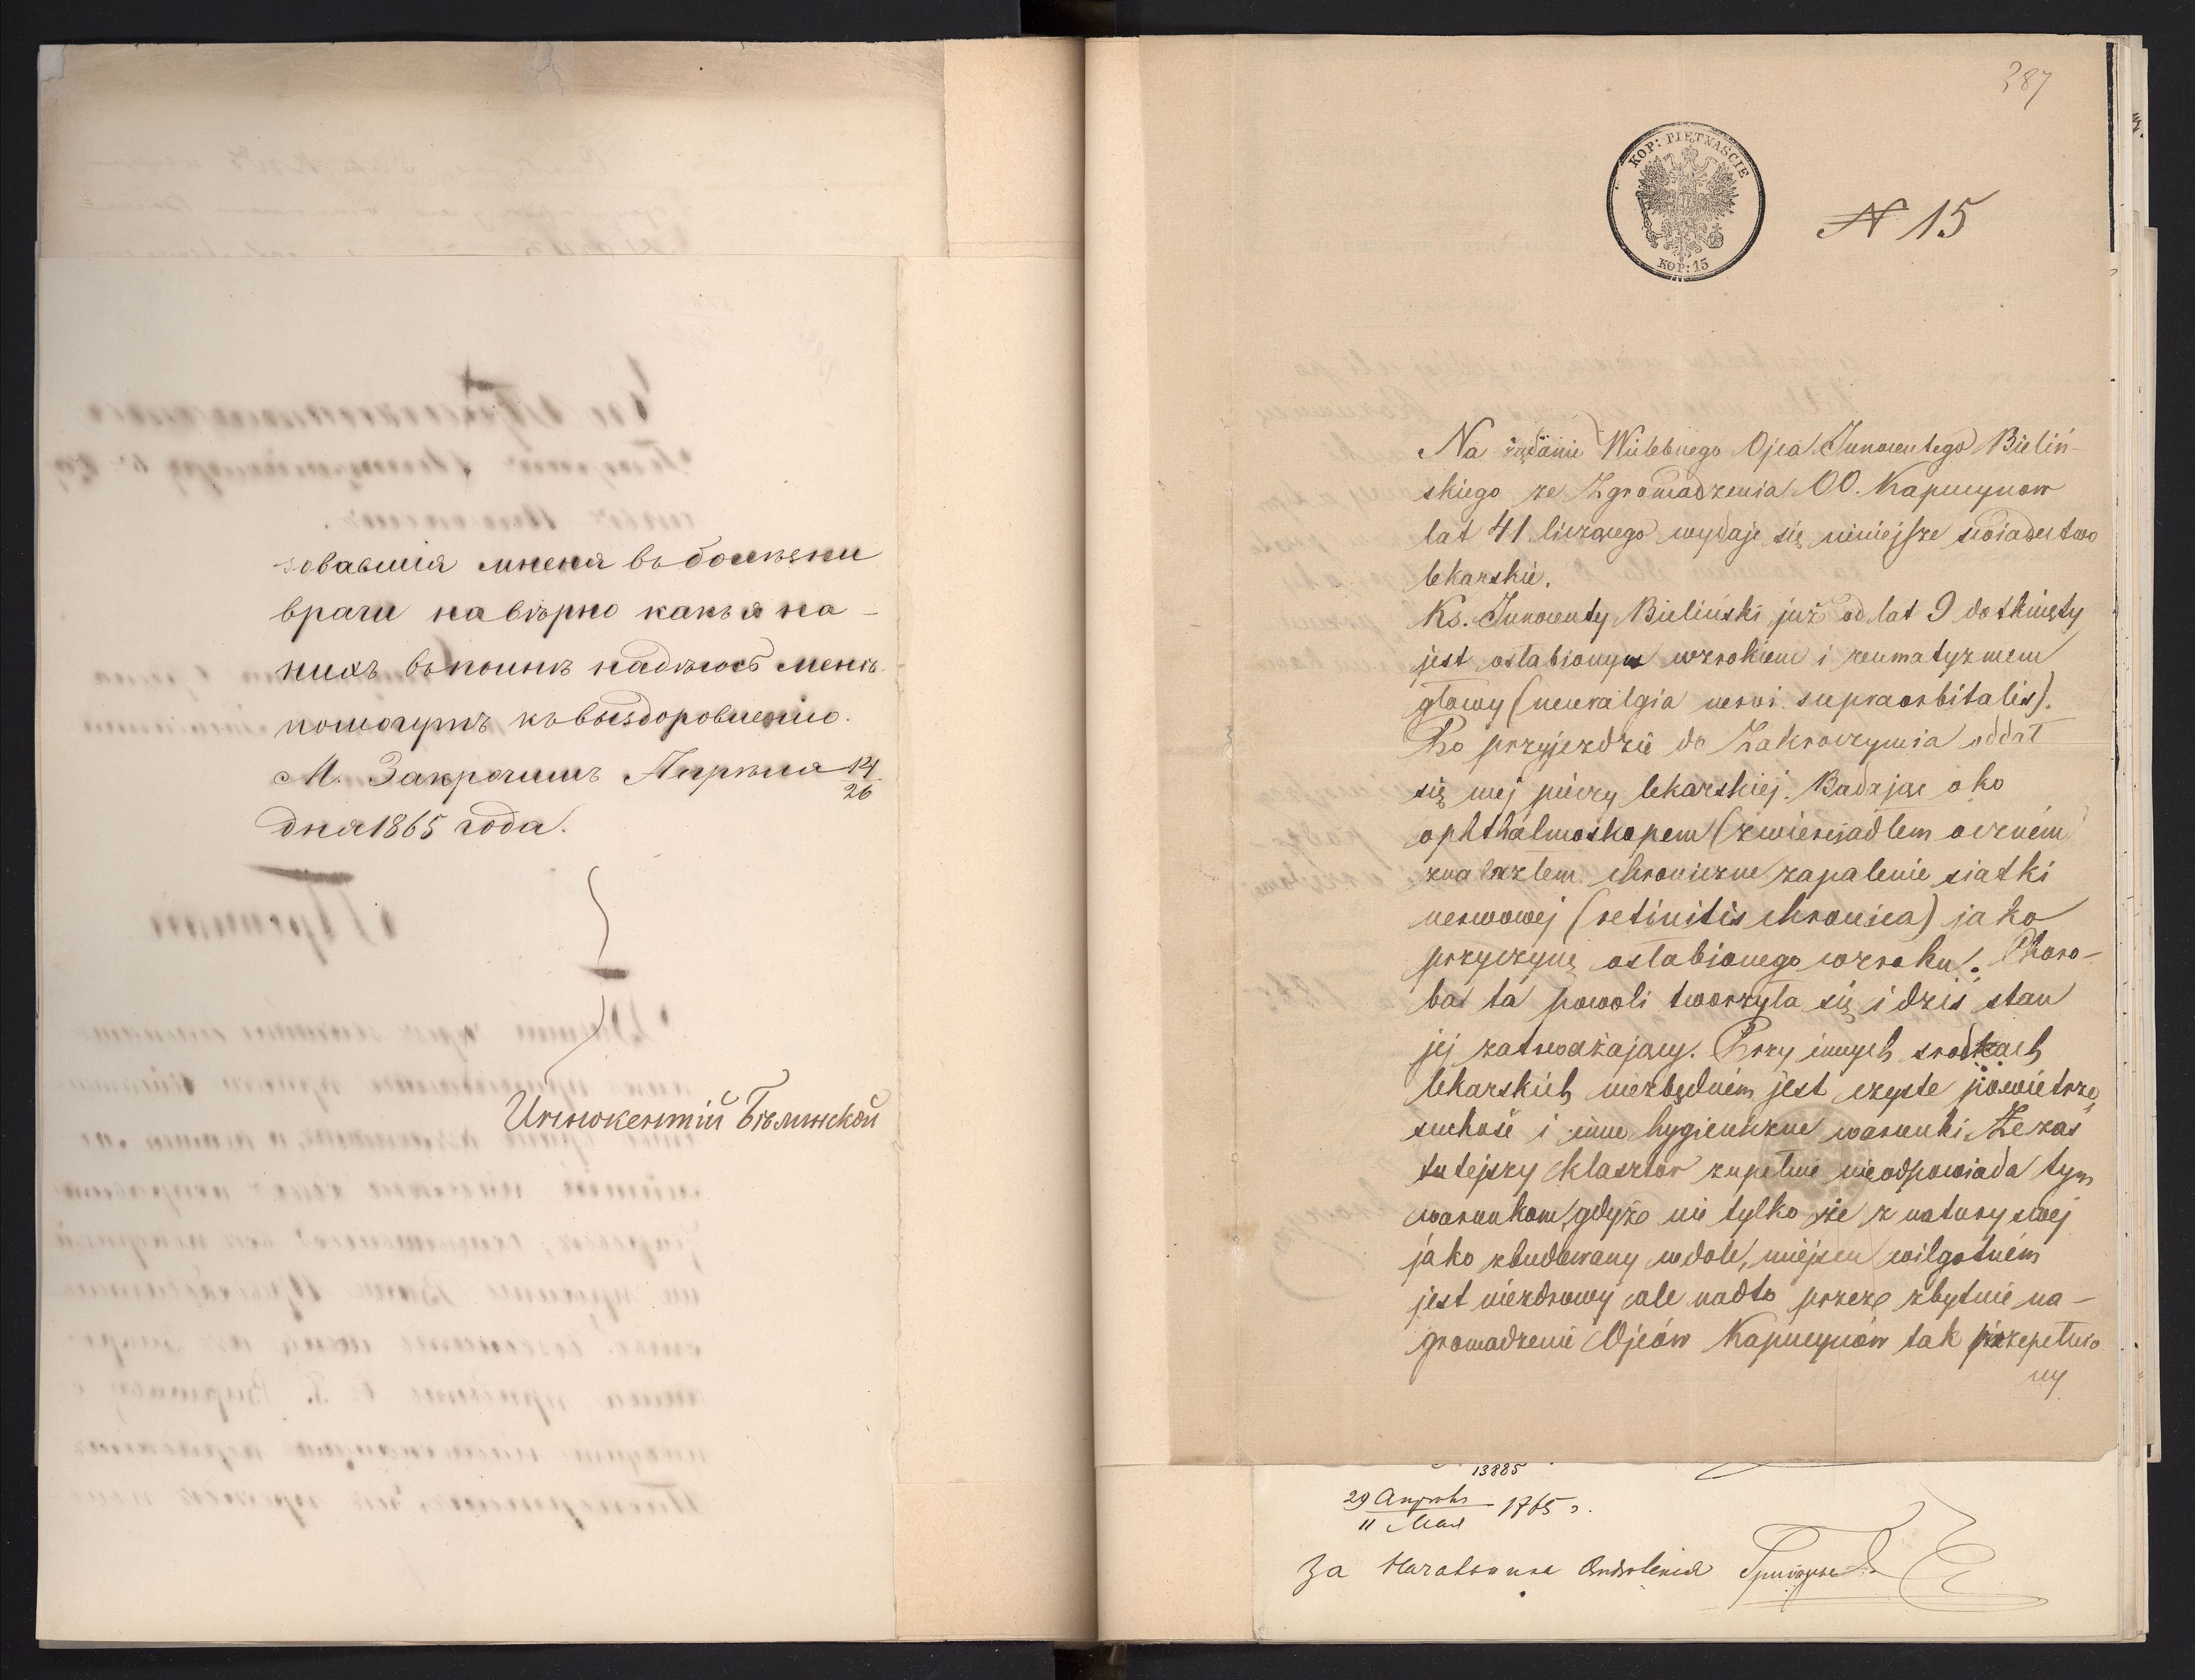 зовавшія мнения въ болѣзни
врачи навѣрно какъ я на-
нихъ вполнѣ надѣюсъ менѣ
помогутъ къ выздоровленію.
М. Закрочимъ Апрѣля 14
26
дня 1865 года.
Иннокентій Бѣлинской
387
KOP: PIĘTNAŚCIE
KOP: 15
N 15
Na żądanie Wielebnego Ojca Innocentego Bieliń-
skiego ze Zgromadzenia OO. Kapucynow
lat 41 liczącego wydaje się niniejsze swiadectwo
lekarskie.
Ks. Innocenty Bieliński już od lat 9 dotknięty
jest osłabionym wzrokiem i reumatyzmem
głowy (neuralgia nervi supraorbitalis).
Po przyjezdzie do Zakroczymia oddał
się mej pieczy lekarskiej. Badając oko
ophthalmoskopem (zwierciadłem oczném
znalazłem chroniczne zapalenie siatki
nerwowej (retinitis chronica) jako
przyczynę osłabionego wzroku. Choro-
ba ta powoli tworzyła się i dziś stan
jej zatrważający. Przy innych srodkach
lekarskich niezbędném jest czyste powietrze,
suchość i inne hygieniczne warunki. Że zaś
tutejszy klasztor zupełnie nieodpowiada tym
warunkom, gdyż nie tylko że z natury swej
jako zbudowany w dole, miejscu wilgotném
jest niezdrowy ale nadto przez zbytnie na-
gromadzenie Ojców Kapucynów tak przepełnio
ny
13885
29 Апрѣля
11 Мая 1865 г.
За Начальника Отдѣленія